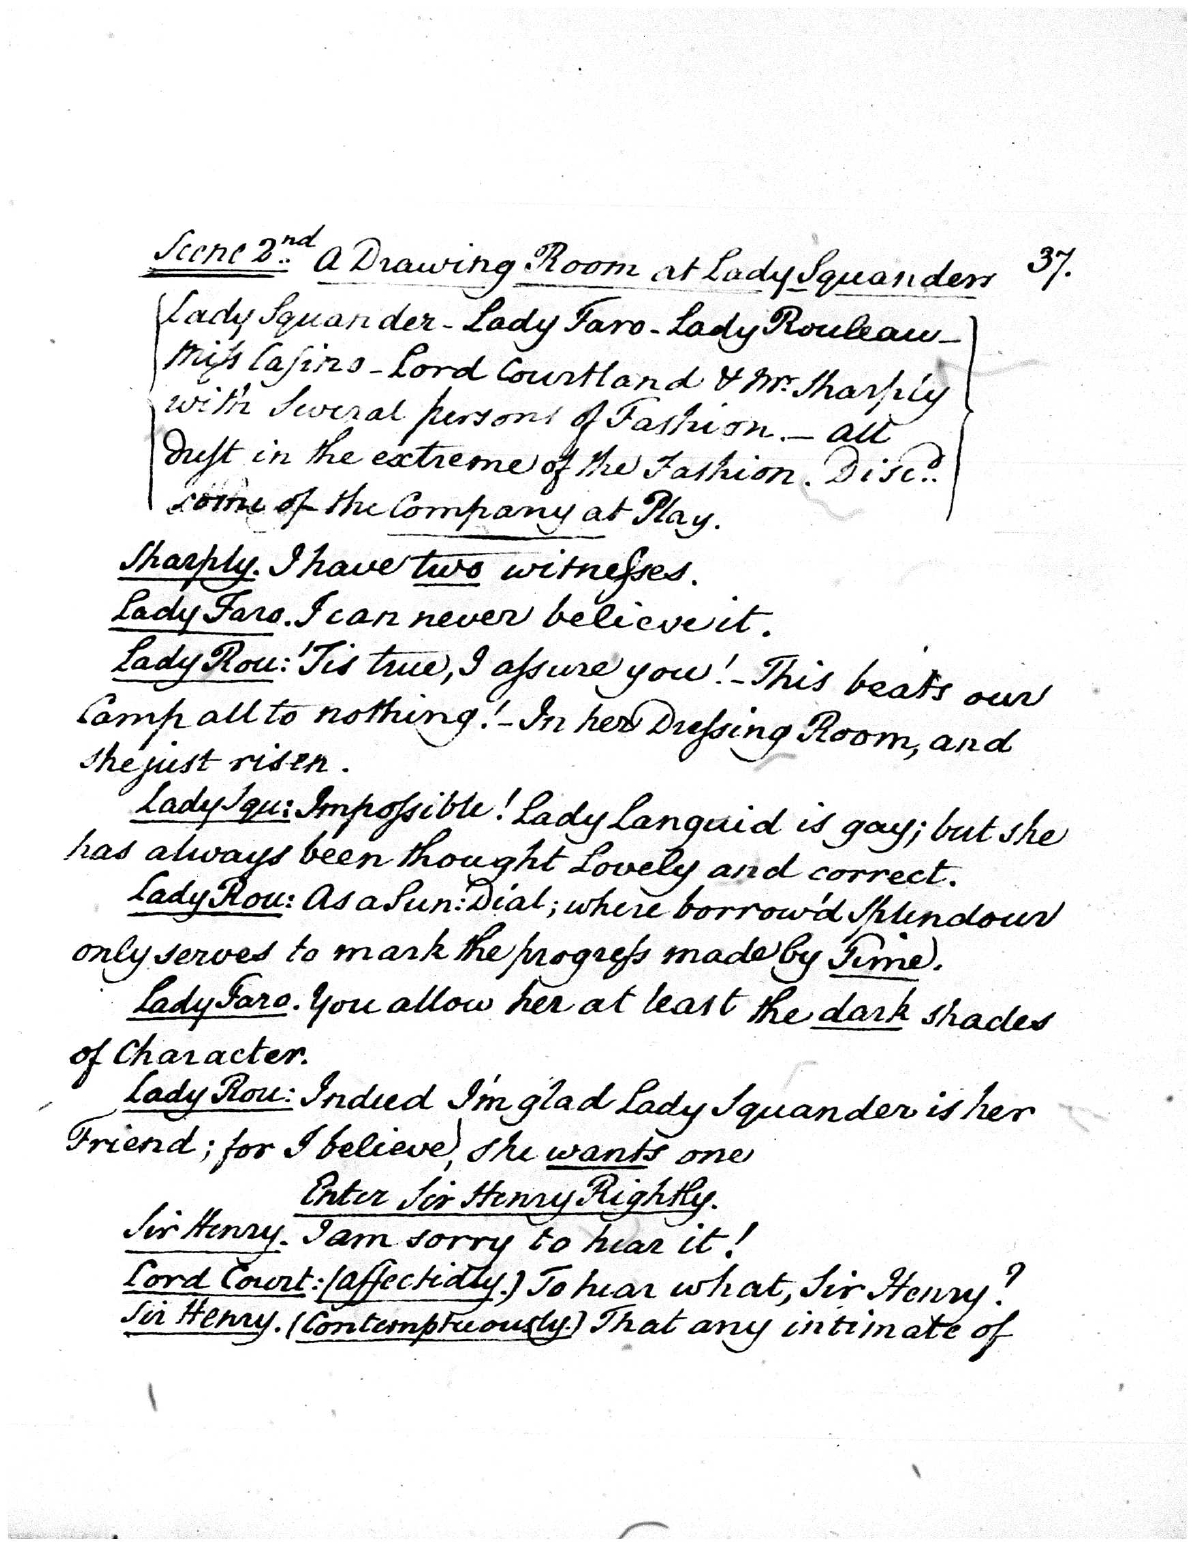 Scene 2.nd A Drawing Room at Lady Squanders 37.
Lady Squander - Lady Faro - Lady Rouleau -
Miſs Caſino - Lord Courtland & Mr. Sharply
with Several persons of Fashion. — all
Dreſt in the extreme of the Fashion. Disc.d
some of the Company at Play.
Sharply. I have two witneſses.
Lady Faro. I can never believe it.
Lady Rou: 'Tis true, I aſsure you! - This beats our
Camp all to nothing! - In her Dreſsing Room, and
she just risen.
Lady Squ: Impoſsible! Lady Languid is gay; but she
has always been thought Lovely and correct.
Lady Rou: As a Sun: Dial; where borrow'd Splendour
only serves to mark the progreſs made by Time.
Lady Faro. You allow her at least the dark shades
of Character.
Lady Rou: Indeed I'm glad Lady Squander is her
Friend; for I believe, she wants one
Enter Sir Henry Rightly.
Sir Henry. I am sorry to hear it!
Lord Court: (affectedly.) To hear what, Sir Henry?
Sir Henry. (Contemptuously.) That any intimate of